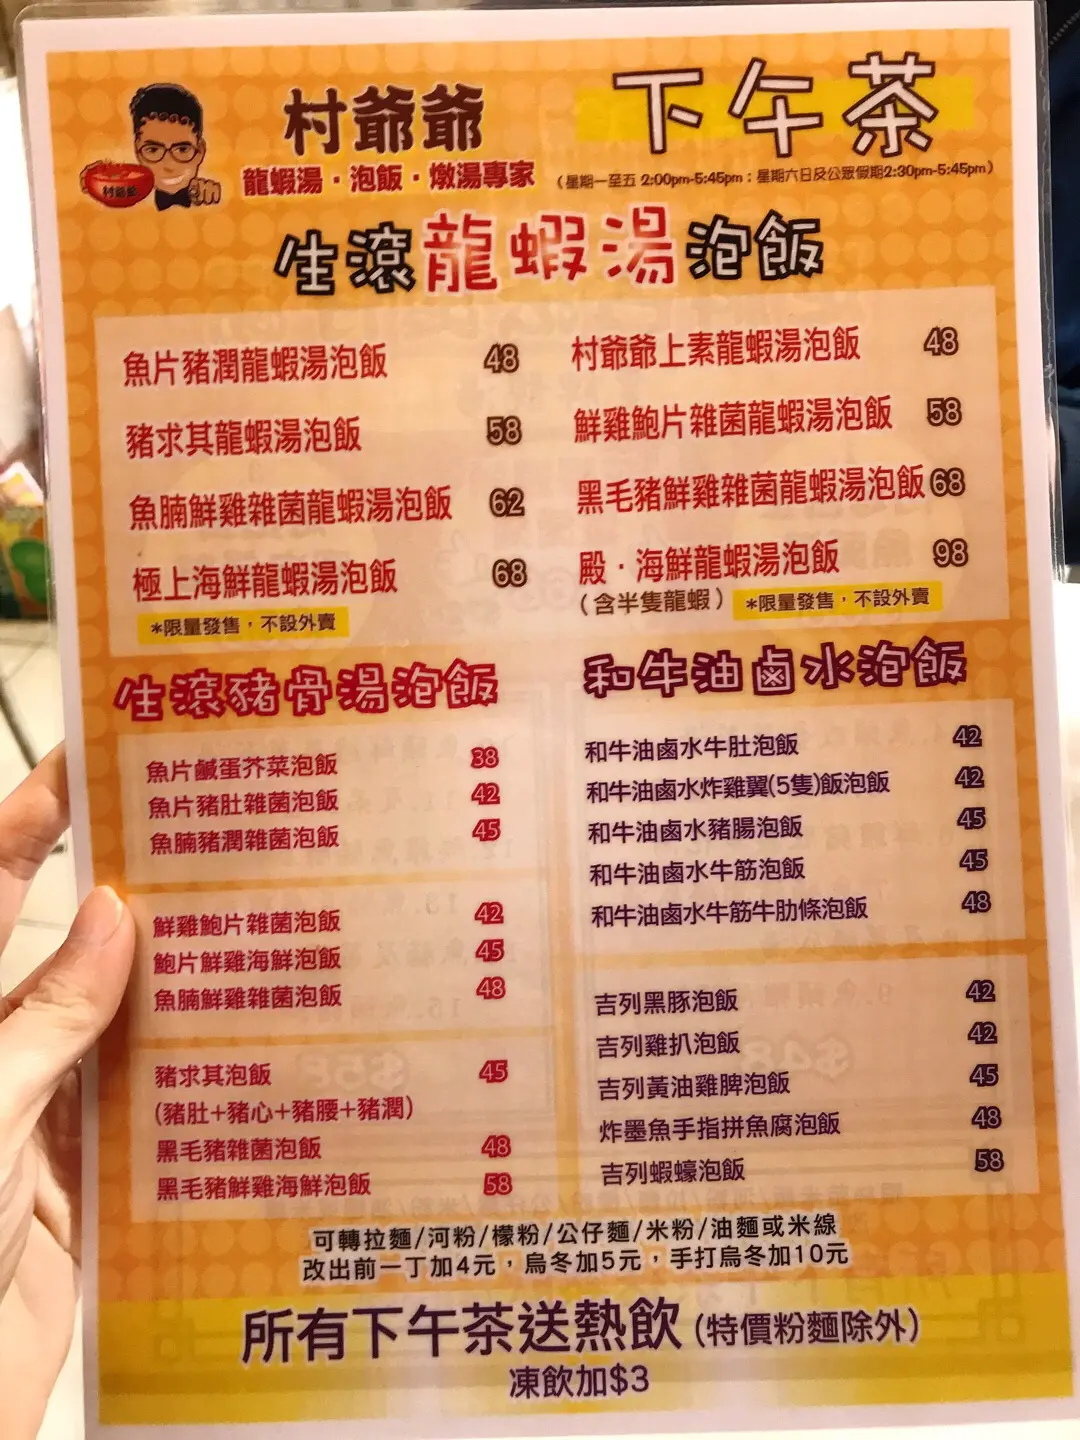 村爺爺
下午茶
村爺爺
龍蝦湯・泡飯・燉湯專家
(星期一至五 2:00pm-5:45pm；星期六日及公眾假期2:30pm-5:45pm)
生滾龍蝦湯泡飯
魚片豬潤龍蝦湯泡飯 48
豬求其龍蝦湯泡飯 58
魚腩鮮雞雜菌龍蝦湯泡飯 62
極上海鮮龍蝦湯泡飯 68
*限量發售，不設外賣
村爺爺上素龍蝦湯泡飯 48
鮮雞鮑片雜菌龍蝦湯泡飯 58
黑毛豬鮮雞雜菌龍蝦湯泡飯 68
殿・海鮮龍蝦湯泡飯 98
(含半隻龍蝦) *限量發售，不設外賣
生滾豬骨湯泡飯
魚片鹹蛋芥菜泡飯 38
魚片豬肚雜菌泡飯 42
魚腩豬潤雜菌泡飯 45
鮮雞鮑片雜菌泡飯 42
鮑片鮮雞海鮮泡飯 45
魚腩鮮雞雜菌泡飯 48
豬求其泡飯 45
(豬肚+豬心+豬腰+豬潤)
黑毛豬雜菌泡飯 48
黑毛豬鮮雞海鮮泡飯 58
和牛油鹵水泡飯
和牛油鹵水牛肚泡飯 42
和牛油鹵水炸雞翼(5隻)飯泡飯 42
和牛油鹵水豬腸泡飯 45
和牛油鹵水牛筋泡飯 45
和牛油鹵水牛筋牛肋條泡飯 48
吉列黑豚泡飯 42
吉列雞扒泡飯 42
吉列黃油雞脾泡飯 45
炸墨魚手指拼魚腐泡飯 48
吉列蝦蠔泡飯 58
可轉拉麵/河粉/檬粉/公仔麵/米粉/油麵或米線
改出前一丁加4元，烏冬加5元，手打烏冬加10元
所有下午茶送熱飲 (特價粉麵除外)
凍飲加$3